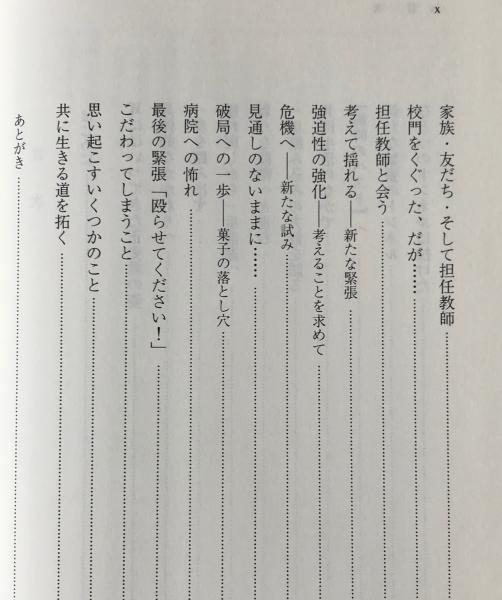 x
家族・友だち・そして担任教師
校門をくぐった、だが……
担任教師と会う
考えて揺れる——新たな緊張
強迫性の強化——考えることを求めて
危機へ——新たな試み
見通しのないままに……
破局への一歩——菓子の落とし穴
病院への怖れ
最後の緊張「殴らせてください！」
こだわってしまうこと
思い起こすいくつかのこと
共に生きる道を拓く
あとがき